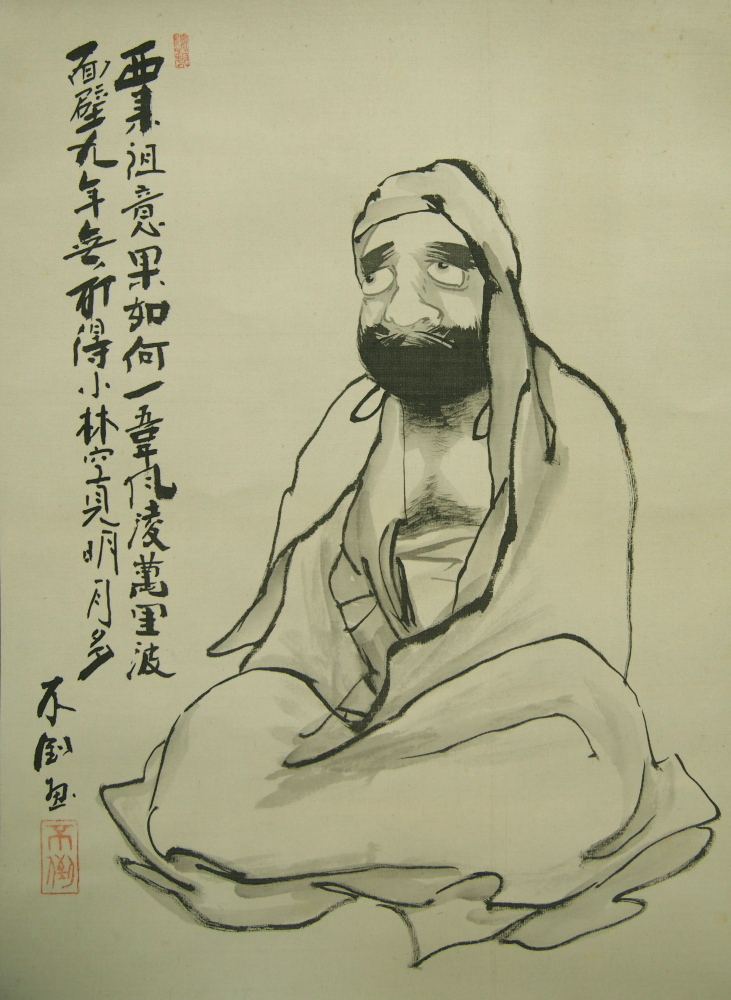 西来祖意果如何一葦凭凌萬里波
面壁九年無所得小林空見明月多
不倒画
不倒